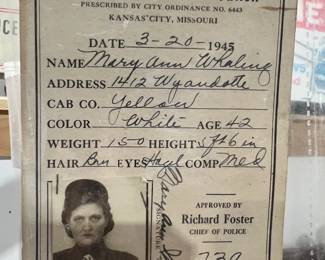 PRESCRIBED BY CITY ORDINANCE NO. 6443
KANSAS CITY, MISSOURI
DATE 3-20-1945
NAME Mary Ann Whaling
ADDRESS 1412 Wyandotte
CAB CO. Yellow
COLOR White AGE 42
WEIGHT 150 HEIGHT 5 ft 6 in
HAIR Brn EYES Hazel COMP Med
APPROVED BY
Richard Foster
CHIEF OF POLICE
739